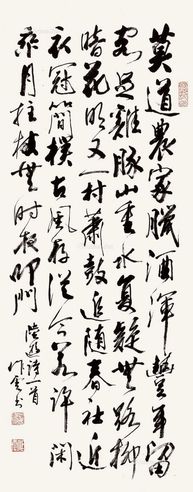 莫道農家臘酒渾豐年留
客足雞豚山重水复疑無路柳
暗花明又一村蕭鼓追隨春社近
衣冠簡樸古風存從今若許閑
乘月柱杖無時夜叩門
陸游詩一首